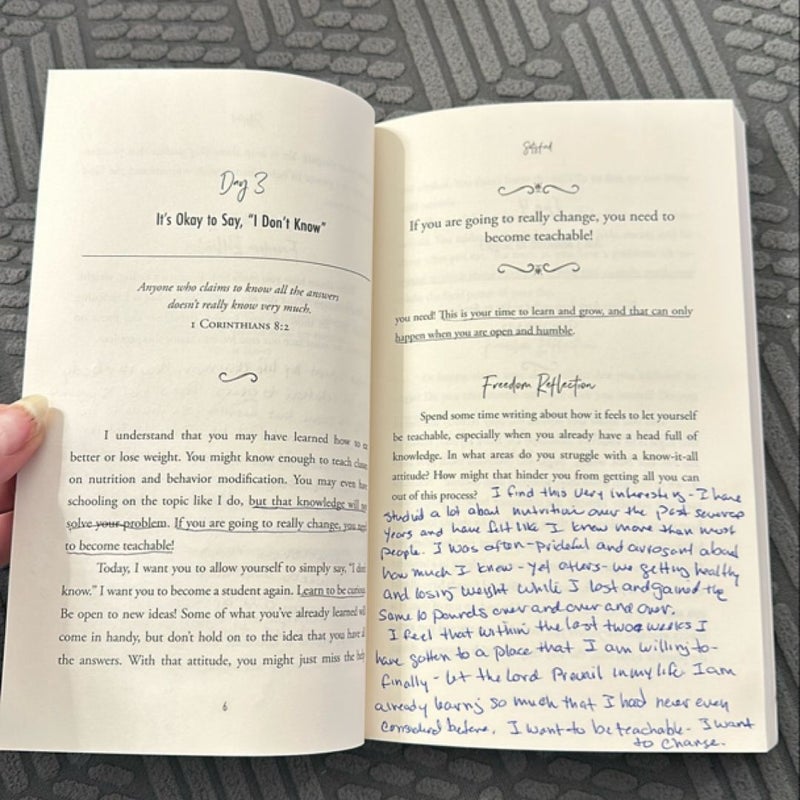 Day 3
It's Okay to Say, "I Don't Know"
Anyone who claims to know all the answers
doesn't really know very much.
1 Corinthians 8:2
I understand that you may have learned how to
better or lose weight. You might know enough to teach
on nutrition and behavior modification. You may even
schooling on the topic like I do, but that knowledge will
solve your problem. If you are going to really change, you
to become teachable!
Today, I want you to allow yourself to simply say, "I
know." I want you to become a student again. Learn to be curious
Be open to new ideas! Some of what you've already learned
come in handy, but don't hold on to the idea that you have
the answers. With that attitude, you might just miss the
6
If you are going to really change, you need to
become teachable!
you need! This is your time to learn and grow, and that can only
happen when you are open and humble.
Freedom Reflection
Spend some time writing about how it feels to let yourself
be teachable, especially when you already have a head full of
knowledge. In what areas do you struggle with a know-it-all
attitude? How might that hinder you from getting all you can
out of this process? I find this very interesting - I have
studied a lot about nutrition over the past
years and have felt like I knew more than most
people. I was often - prideful and about
how much I knew - yet others getting healthy
and losing weight while I lost and gained the
same 10 pounds over and over and over.
I feel that within the last two weeks I
have gotten to a place that I am willing to -
finally - let the Lord Prevail in my life. I am
already so much that I had never even
considered before. I want to be teachable - I want
to change.